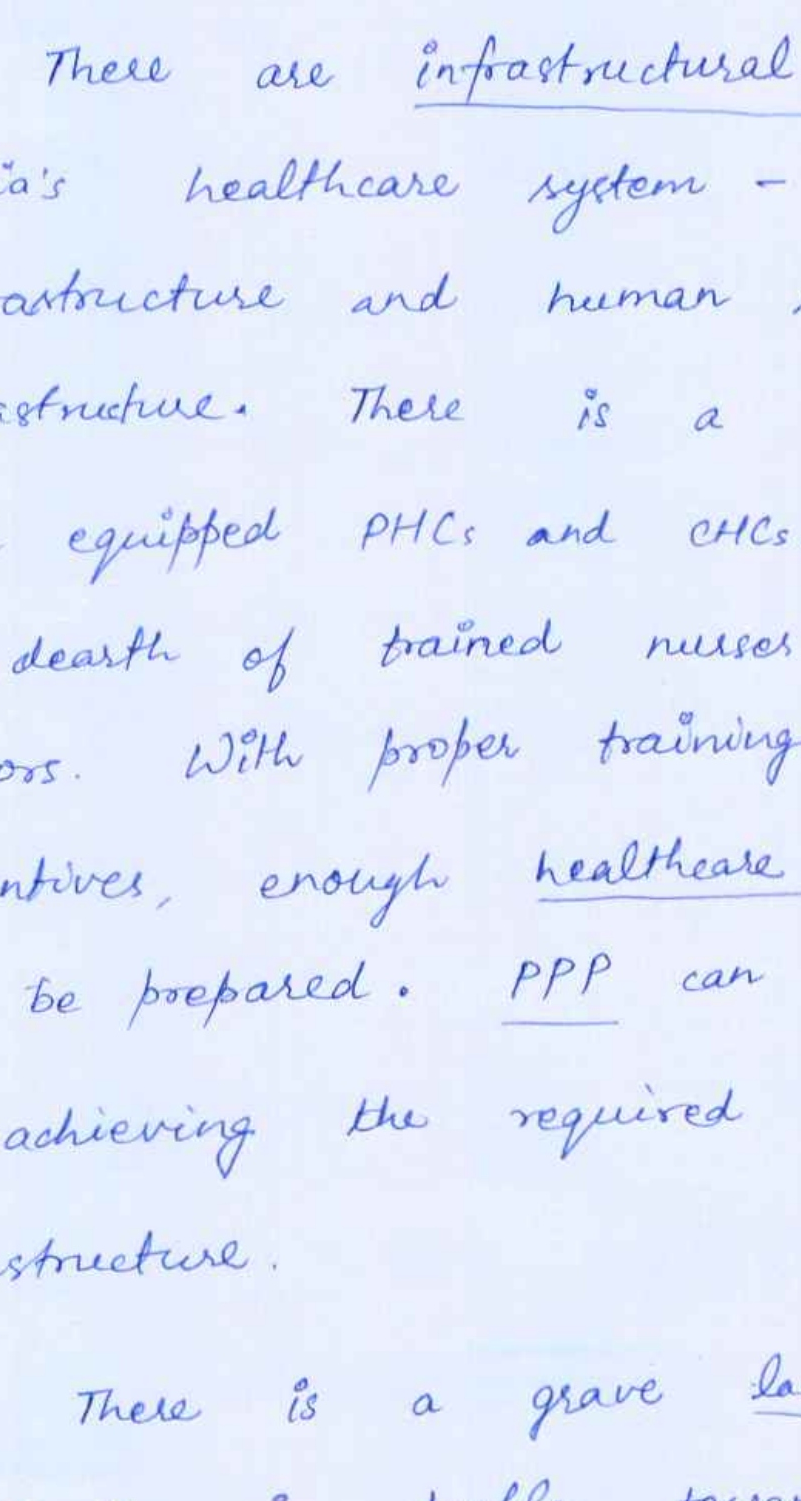 There are infrastructural
ia's healthcare system -
astructure and human
astructure. There is a
equipped PHCs and CHCs
dearth of trained nurses
ors. With proper training
ntives, enough healthcare
be prepared. PPP can
achieving the required
structure.
There is a grave la